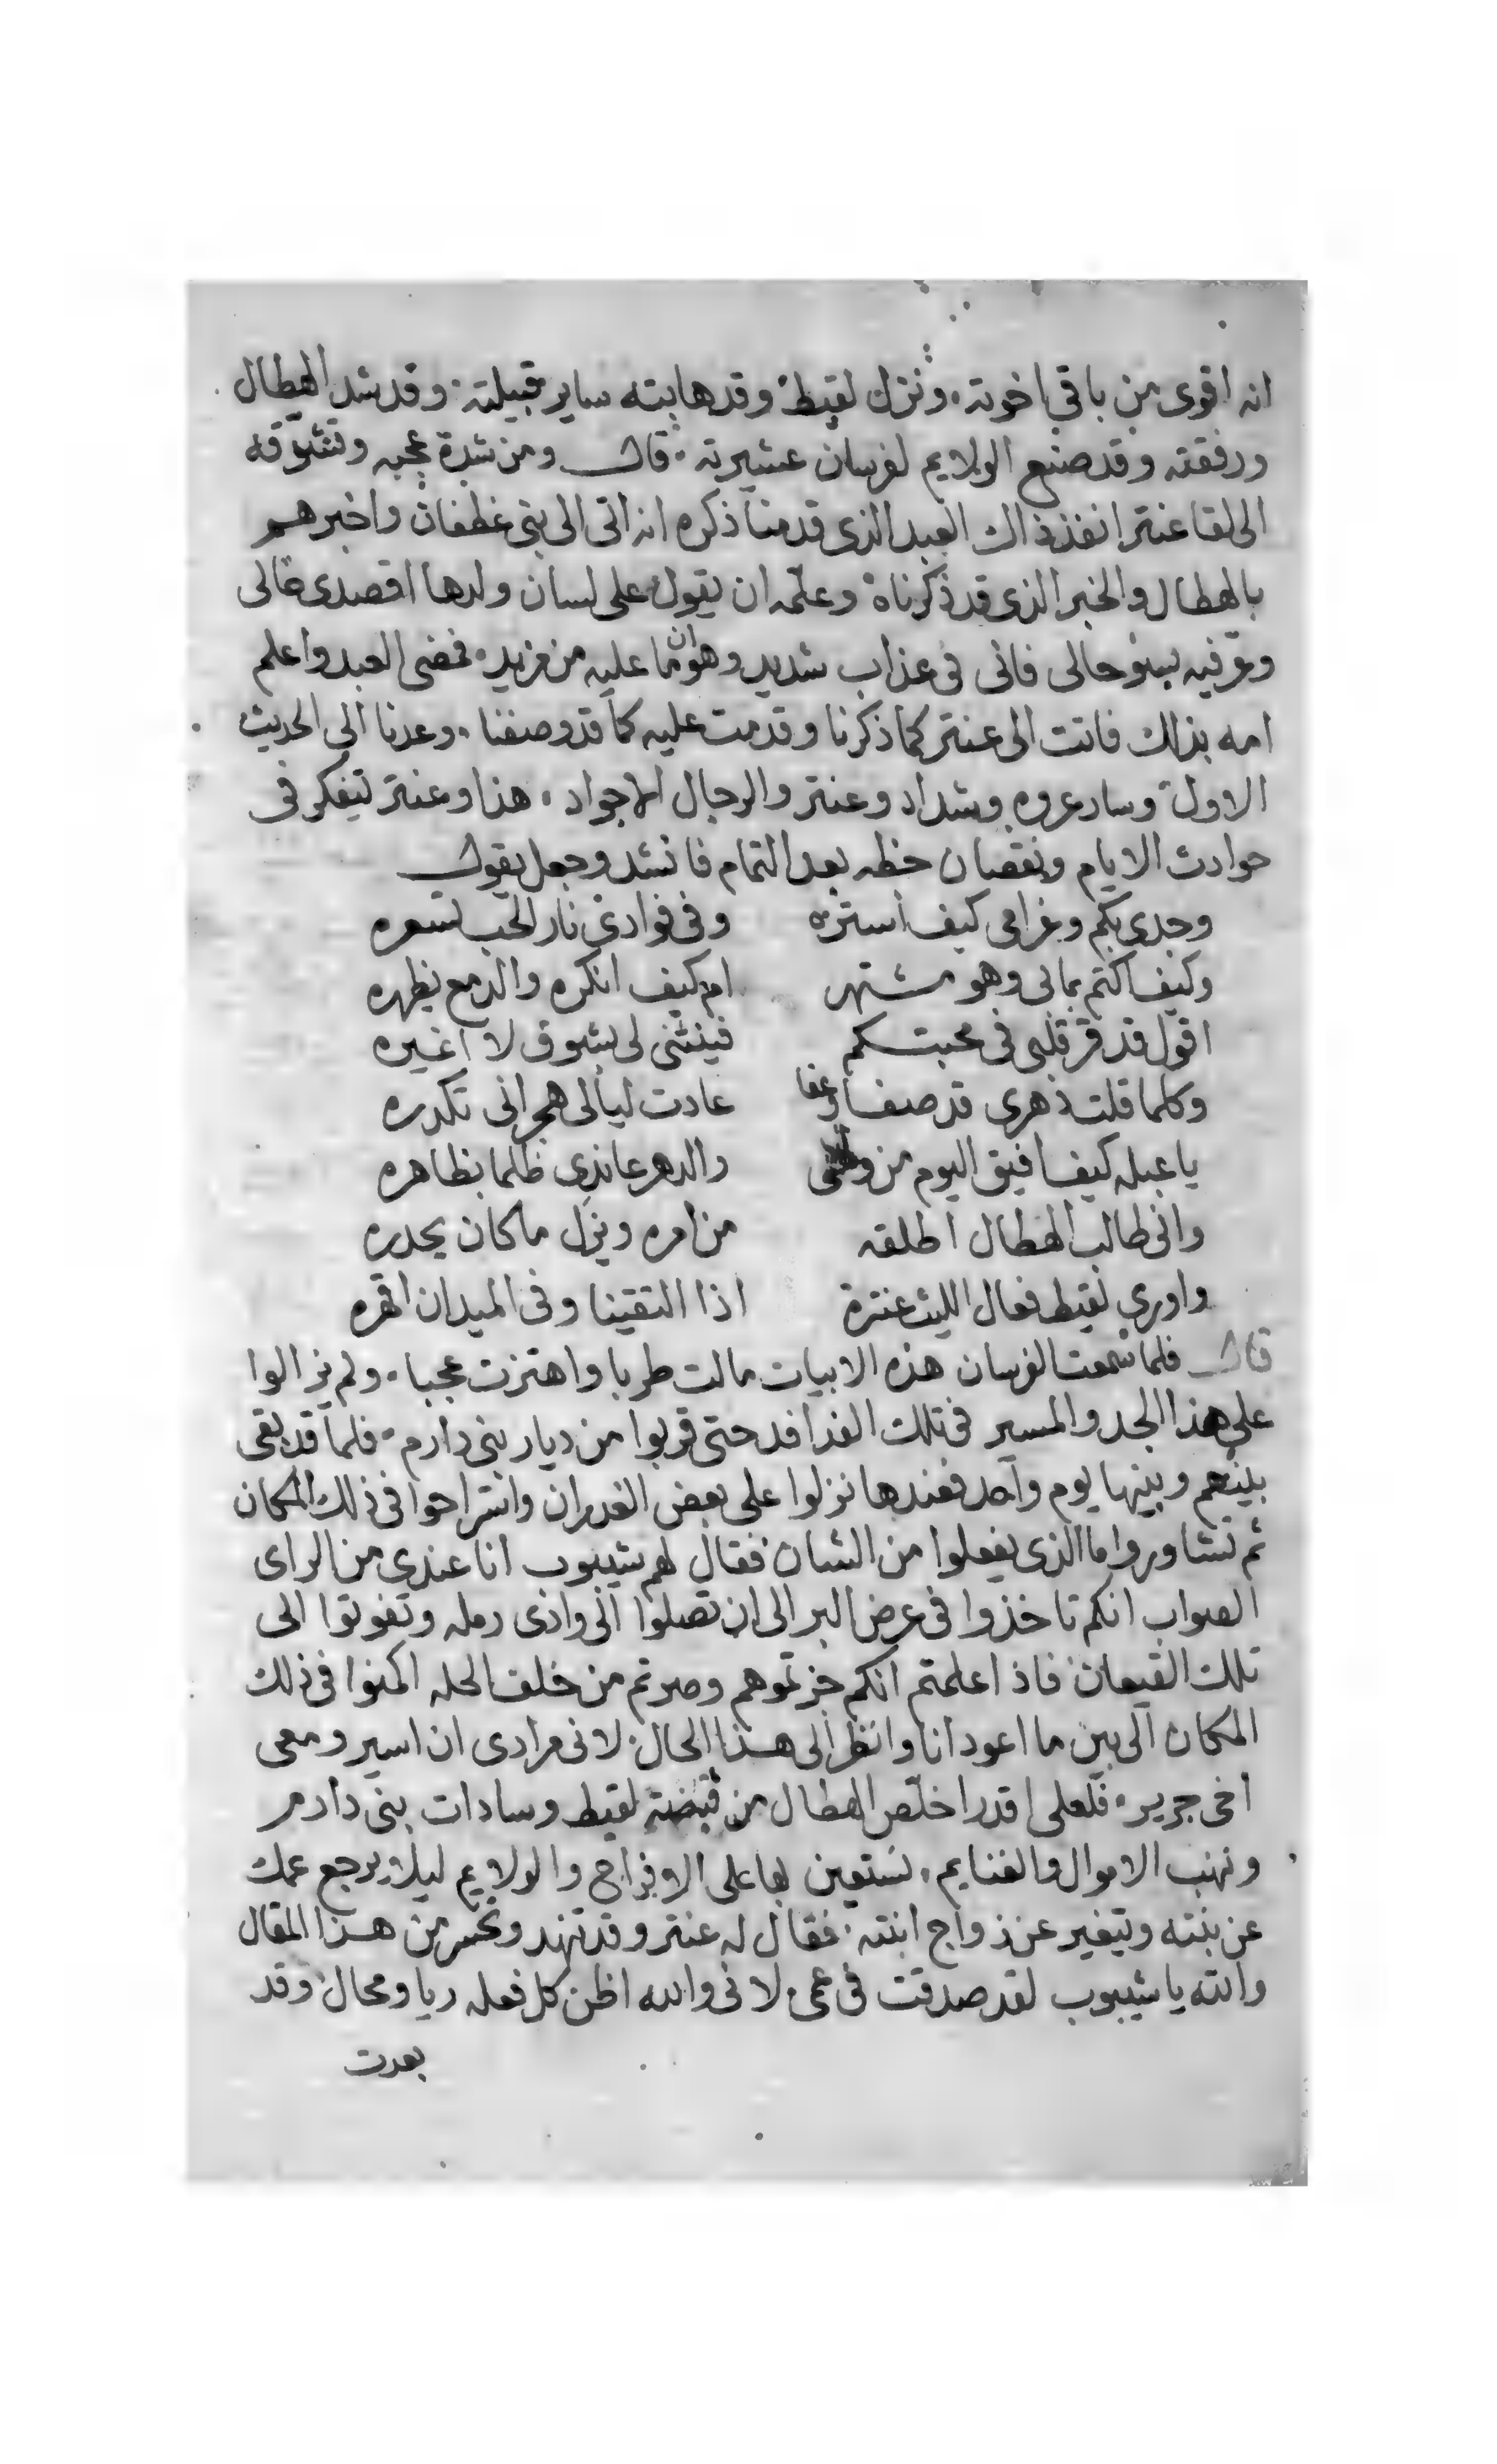 انه اقوى من باقي اخوته. ونزل لقيط وقد هابته ساير قبيلته. وقد شد الهطال
ورفقته وقد صنع الولايم لفرسان عشيرته. قال ومن شدة عجبه وتشوقه
الى لقا عنتر انفذ ذاك العبد الذى قدمنا ذكره انه اتى الى بنى غطفان واخبرهم
بالهطال والخبر الذى قد ذكرناه وعلمه ان يقول على لسان ولدها اقصدى خالى
وعرفيه بسو حالى فانى فى عذاب شديد وهوان ما عليه من مزيد. فمضى العبد واعلم
امه بذلك فاتت الى عنتر كما ذكرنا وقدمت عليه كما قد وصفنا. وعدنا الى الحديث
الاول وسار عروه وشداد وعنتر والرجال الاجواد. هذا وعنتر يتفكر فى
حوادث الايام ونقصان حظه بعد التمام فانشد وجعل يقول
وجدى بكم وغرامى كيف استره وفى فوادى نار الحب تسعره
وكيف اكتم مابى وهو مشتهر ام كيف انكره والدمع يظهره
اقول قد قر قلبى فى محبتكم فينثنى لى بشوق لا اغيره
وكلما قلت دهرى قد صفا وعفا عادت ليالى هجرانى تكدره
يا عبله كيف افيق اليوم من والدهر عاندى ظلما بظاهره
وانى طالب الهطال اطلقه من اسره ونزل ما كان يحدره
واورى لقيط فعال الليث عنترة اذا التقينا وفى الميدان اقهره
قال فلما سمعت الفرسان هذه الابيات مالت طربا واهتزت عجبا. ولم يزالوا
على هذا الجد والمسير فى تلك الفدافد حتى قربوا من ديار بنى دارم. فلما قد بقى
بينهم وبينها يوم واحد فعندها نزلوا على بعض الغدران واستراحوا فى ذلك المكان
ثم تشاوروا ما الذى يفعلوا من الشان فقال لهم شيبوب انا عندى من الراى
الصواب انكم تاخذوا فى عرض البر الى ان تصلوا الى وادى رمله وتفوتوا الى
تلك القيعان فاذا علمتم انكم جزتموهم وصرتم من خلف الحله اكمنوا فى ذلك
المكان الى بين ما اعود انا وانظر الى هذا الحال. لانى مرادى ان اسير ومعى
اخى جرير. فلعلى اقدر اخلص الهطال من قبضة لقيط وسادات بنى دارم
ونهب الاموال والغنايم. نستعين بها على الافراح والولايم ليلا يرجع عمك
عن بنته ويتغير عن زواج ابنته. فقال له عنتر وقد تنهد وتحسر من هذا المقال
والله يا شيبوب لقد صدقت فى عمى لانى والله اظن كل فعله ريا ومحال وقد
بعدت